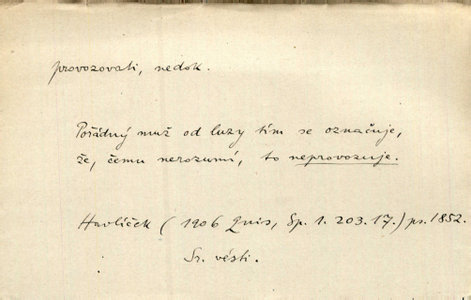 provozovati, nedok.
Pořádný muž od luzy tím se označuje,
že, čemu nerozumí, to neprovozuje.
Havlíček (1906 Quis, Sp. 1. 203. 17.) ps. 1852.
Sr. vésti.